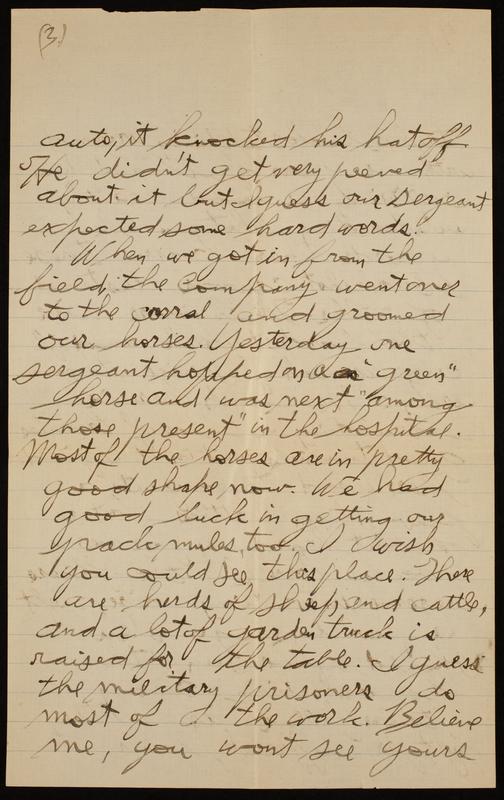 (3.)
auto, it knocked his hat off
He didn't get very peeved
about it but I guess our Sergeant
expected some hard words.
When we got in from the
field, the Company went over
to the corral and groomed
our horses. Yesterday one
sergeant hopped on a "green"
horse and was next "among
those present" in the hospital.
Most of the horses are in pretty
good shape now. We had
good luck in getting our
pack mules, too. I wish
you could see this place. There
are herds of sheep and cattle,
and a lot of garden truck is
raised for the table. I guess
the military prisoners do
most of the work. Believe
me, you wont see yours